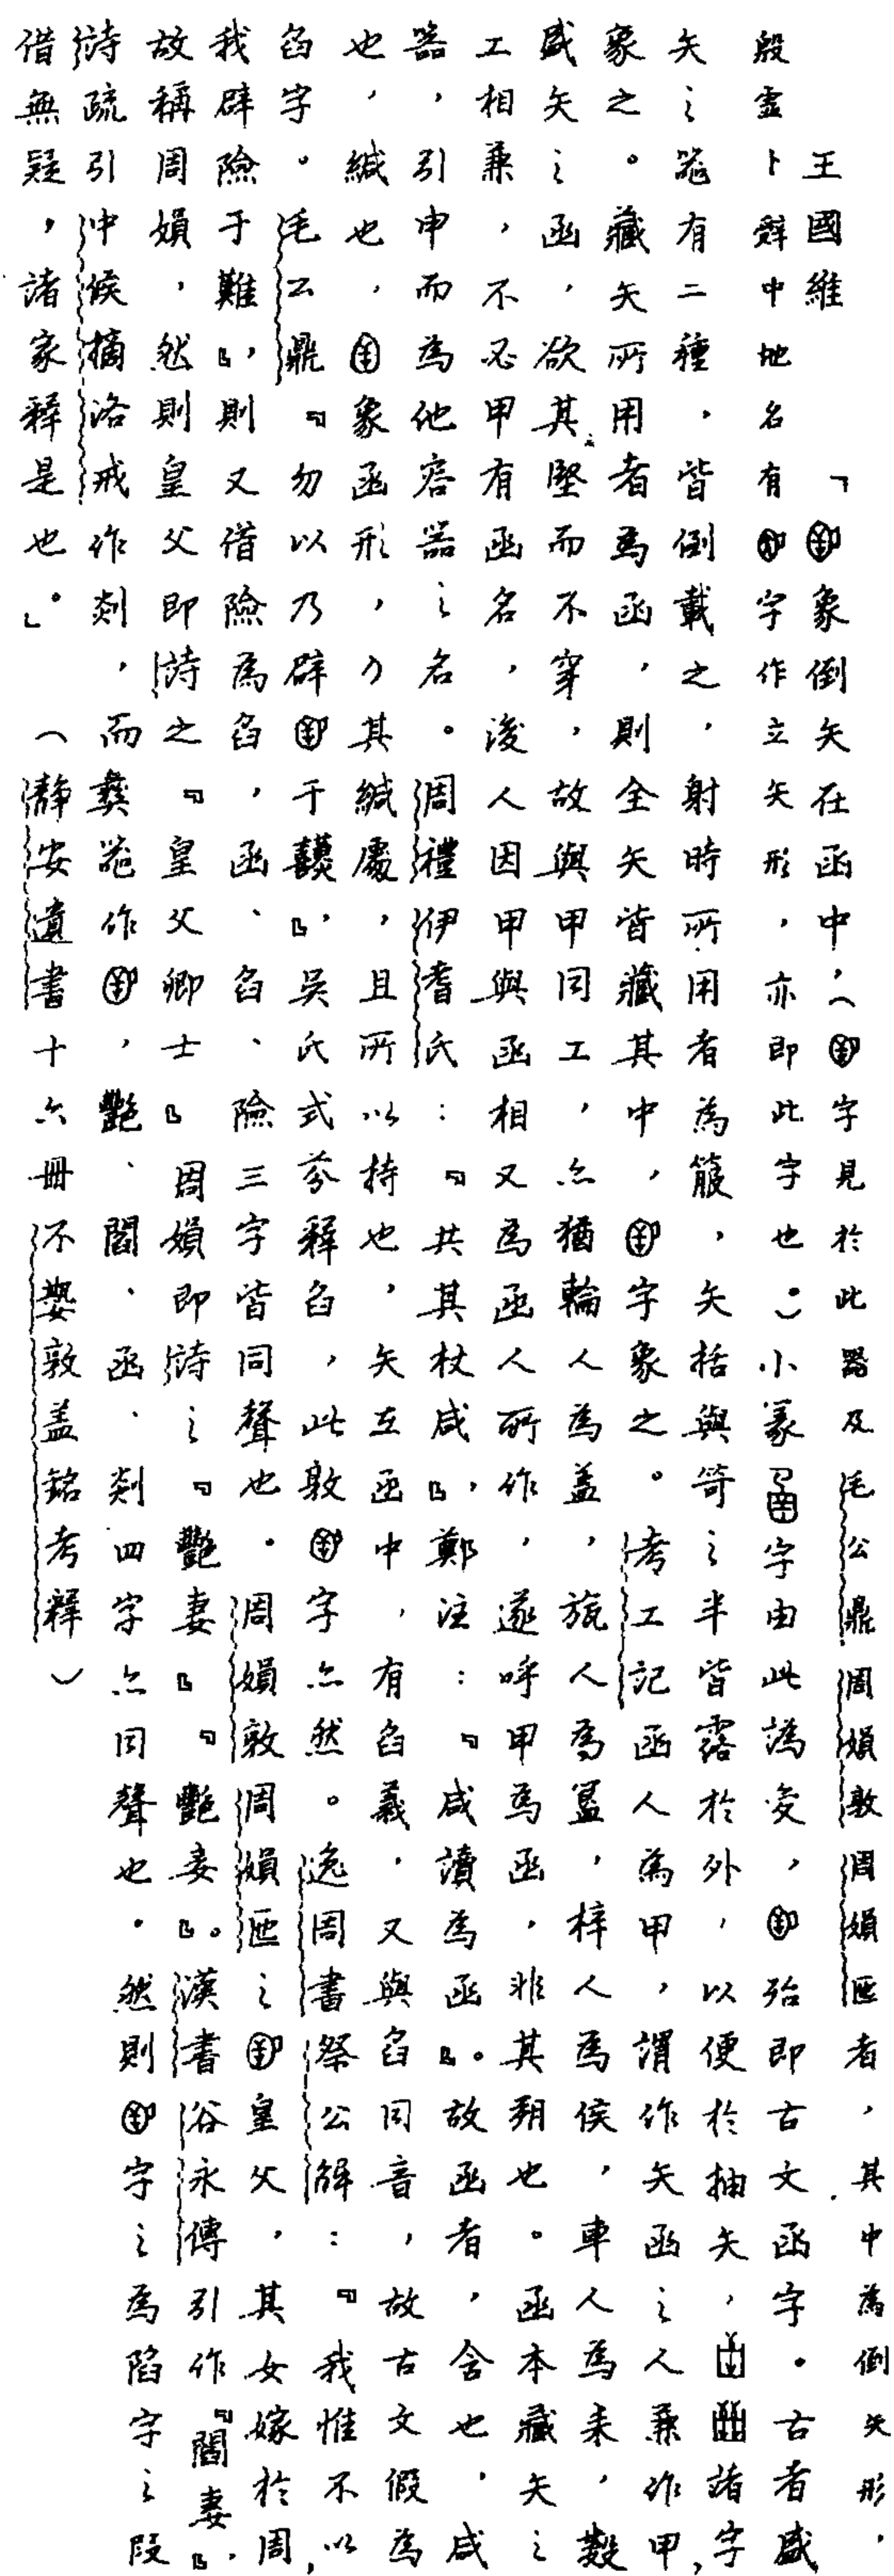 王國維　「象倒矢在函中，（字見於此器及毛公鼎周㜏敦周㜏匜者，其中為倒矢形，
殷虛卜辭中地名有字作立矢形，亦即此字也。）小篆字由此譌變，殆即古文函字。古者盛
矢之器有二種，皆倒載之，射時所用者為箙，矢括與笴之半皆露於外，以便於抽矢，諸字
象之。藏矢所用者為函，則全矢皆藏其中，字象之。考工記函人為甲，謂作矢函之人兼作甲，
盛矢之函，欲其堅而不穿，故與甲同工，亦猶輪人為蓋，旊人為簋，梓人為侯，車人為耒，數
工相兼，不必甲有函名，後人因甲與函相又為函人所作，遂呼甲為函，非其朔也。函本藏矢之
器，引申而為他容器之名。周禮伊耆氏：『共其杖咸』，鄭注：『咸讀為函』。故函者，含也，咸
也，緘也，象函形，其緘處，且所以持也，矢在函中，有臽義，又與臽同音，故古文假為
臽字。毛公鼎『勿以乃辟于囏』，吳氏式芬釋臽，此敦字亦然。逸周書祭公解：『我惟不以
我辟險于難』，則又借險為臽，函、臽、險三字皆同聲也。周㜏敦周㜏匜之皇父，其女嫁於周，
故稱周㜏，然則皇父即詩之『皇父卿士』周㜏即詩之『豔妻』『豔妻』。漢書谷永傳引作『閻妻』，
詩疏引中候擿洛戒作剡，而彝器作，豔、閻、函、剡四字亦同聲也。然則字之為陷字之叚
借無疑，諸家釋是也。」（靜安遺書十六冊不𡢁敦蓋銘考釋）